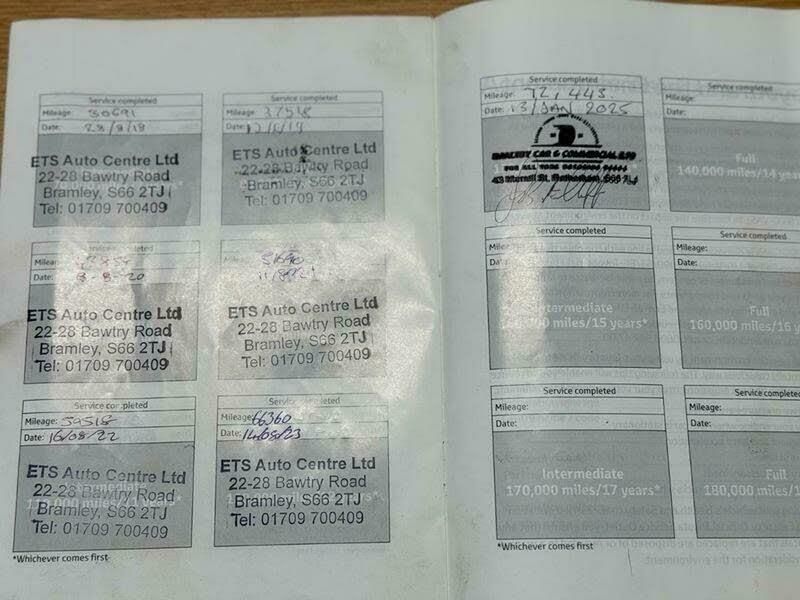 Service completed
Mileage: 30691
Date: 23/8/18
ETS Auto Centre Ltd
22-28 Bawtry Road
Bramley, S66 2TJ
Tel: 01709 700409
Service completed
Mileage: 37518
Date:
ETS Auto Centre Ltd
22-28 Bawtry Road
Bramley, S66 2TJ
Tel: 01709 700409
Service completed
Mileage:
Date: 8-8-20
ETS Auto Centre Ltd
22-28 Bawtry Road
Bramley, S66 2TJ
Tel: 01709 700409
Service completed
51690
ETS Auto Centre Ltd
22-28 Bawtry Road
Bramley, S66 2TJ
Tel: 01709 700409
Service completed
Mileage: 59518
Date: 16/08/22
ETS Auto Centre Ltd
22-28 Bawtry Road
Bramley, S66 2TJ
Tel: 01709 700409
Service completed
Mileage: 66360
Date: 14/08/23
ETS Auto Centre Ltd
22-28 Bawtry Road
Bramley, S66 2TJ
Tel: 01709 700409
*Whichever comes first
Service completed
Mileage: 72,443
Date: 13/JAN 2025
CAR & COMMERCIAL
Service completed
Mileage:
Date:
Full
140,000 miles/14
Service completed
Mileage:
Date:
Intermediate
miles/15 years*
Service completed
Mileage:
Date:
Full
160,000 miles/16
Service completed
Mileage:
Date:
Intermediate
170,000 miles/17 years*
Service completed
Mileage:
Date:
Full
180,000 miles/
*Whichever comes first